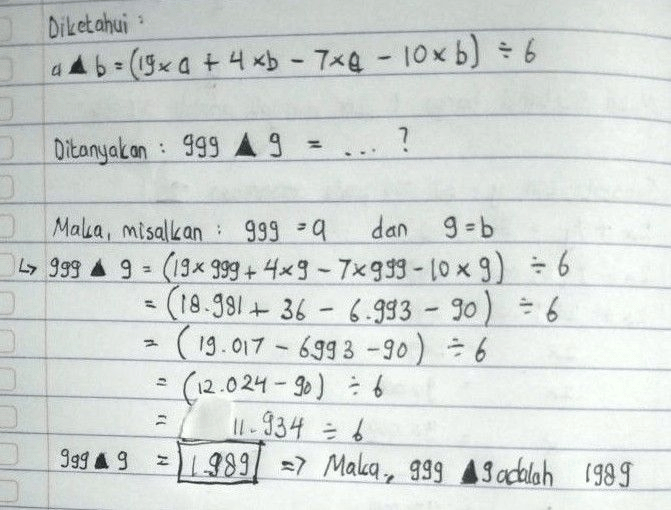 Diketahui :
a ▲ b = (19 × a + 4 × b - 7 × a - 10 × b) ÷ 6
Ditanyakan : 999 ▲ 9 = ... ?
Maka, misalkan : 999 = a dan 9 = b
↳ 999 ▲ 9 = (19 × 999 + 4 × 9 - 7 × 999 - 10 × 9) ÷ 6
= (18.981 + 36 - 6.993 - 90) ÷ 6
= (19.017 - 6993 - 90) ÷ 6
= (12.024 - 90) ÷ 6
= 11.934 ÷ 6
999 ▲ 9 = 1.989 => Maka, 999 ▲ 9 adalah 1989